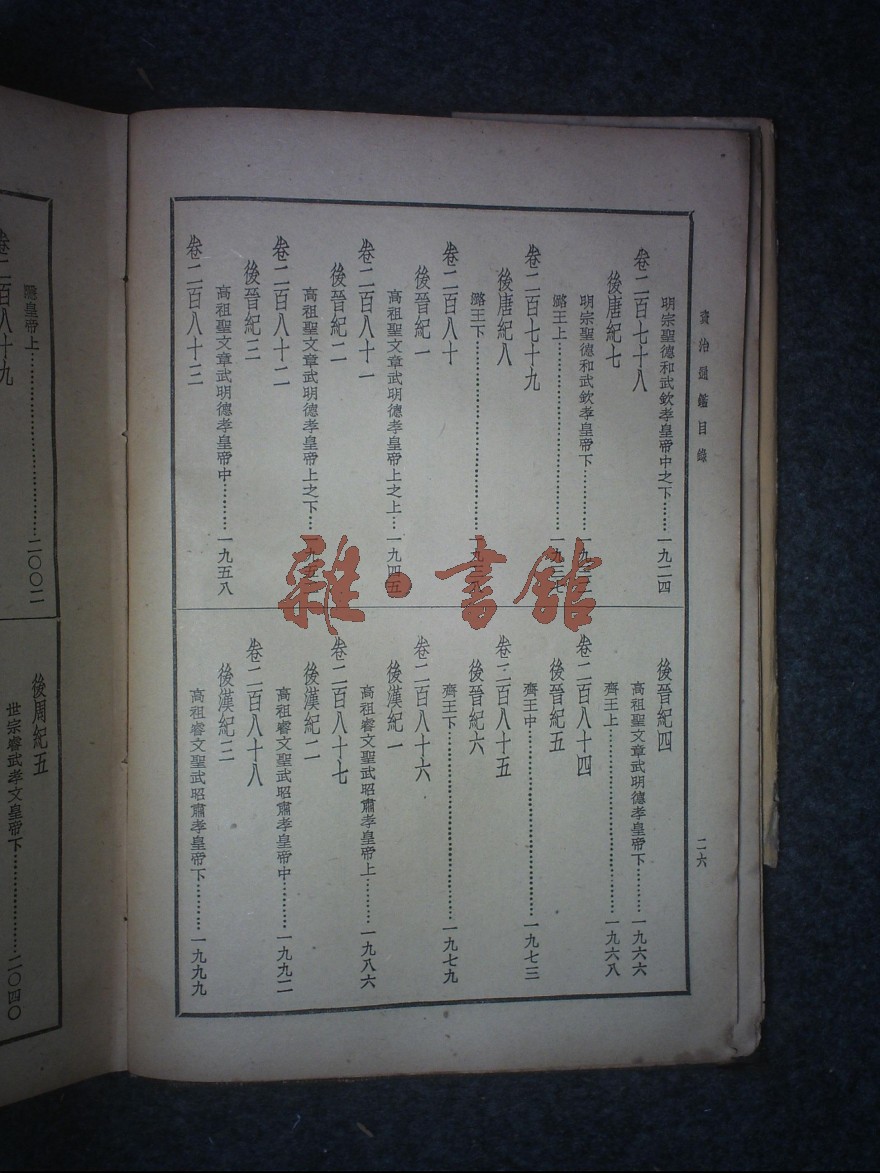 資治通鑑目錄
二六
明宗聖德和武欽孝皇帝中之下……一九二四
卷二百七十八
後唐紀七
明宗聖德和武欽孝皇帝下…………
潞王上……………………
卷二百七十九
後唐紀八
潞王下……………………
卷二百八十
後晉紀一
高祖聖文章武明德孝皇帝上之上…一九四五
卷二百八十一
後晉紀二
高祖聖文章武明德孝皇帝上之下…
卷二百八十二
後晉紀三
高祖聖文章武明德孝皇帝中………一九五八
卷二百八十三
後晉紀四
高祖聖文章武明德孝皇帝下………一九六六
齊王上……………………一九六八
卷二百八十四
後晉紀五
齊王中……………………一九七三
卷二百八十五
後晉紀六
齊王下……………………一九七九
卷二百八十六
後漢紀一
高祖睿文聖武昭肅孝皇帝上………一九八六
卷二百八十七
後漢紀二
高祖睿文聖武昭肅孝皇帝中………一九九二
卷二百八十八
後漢紀三
高祖睿文聖武昭肅孝皇帝下………一九九九
隱皇帝上……………………二〇〇二
卷二百八十九
後周紀五
世宗睿武孝文皇帝下……………二〇四〇
雜·書館